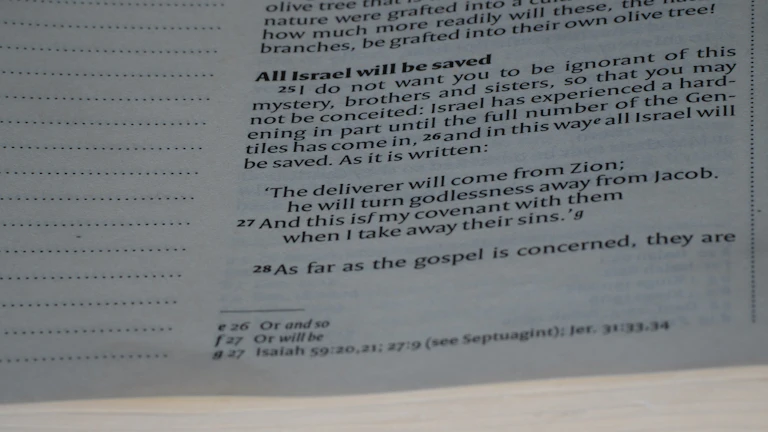 olive tree that is
nature were grafted into a
how much more readily will these, the
branches, be grafted into their own olive tree!
All Israel will be saved
25 I do not want you to be ignorant of this
mystery, brothers and sisters, so that you may
not be conceited: Israel has experienced a hard-
ening in part until the full number of the Gen-
tiles has come in, 26 and in this way e all Israel will
be saved. As it is written:
‘The deliverer will come from Zion;
he will turn godlessness away from Jacob.
27 And this is f my covenant with them
when I take away their sins.’ g
28 As far as the gospel is concerned, they are
e 26 Or and so
f 27 Or will be
g 27 Isaiah 59:20,21; 27:9 (see Septuagint); Jer. 31:33,34